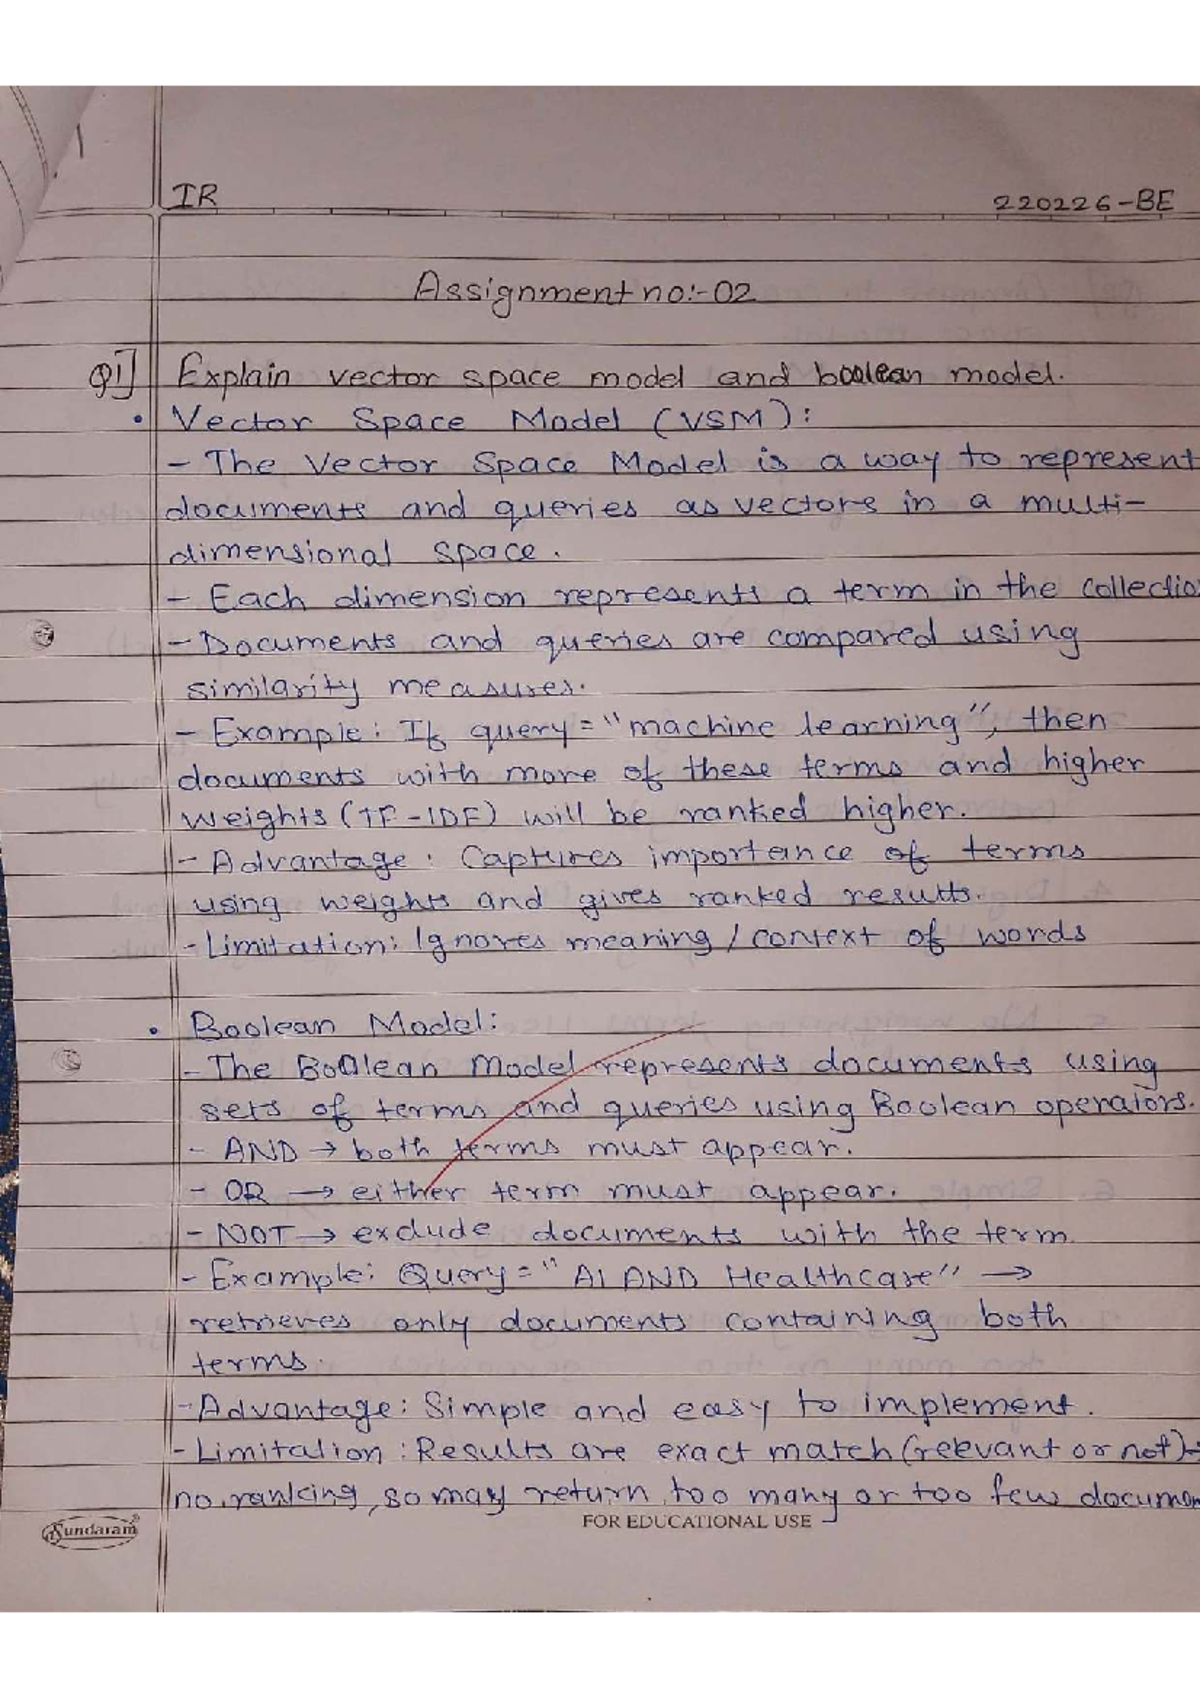 IR
220226-BE
Assignment no:-02
Q1] Explain vector space model and boolean model.
• Vector Space Model (VSM):
- The Vector Space Model is a way to represent
documents and queries as vectors in a multi-
dimensional space.
- Each dimension represents a term in the collectio
- Documents and queries are compared using
similarity measures.
- Example: If query = "machine learning", then
documents with more of these terms and higher
weights (TF-IDF) will be ranked higher.
- Advantage: Captures importance of terms
using weights and gives ranked results.
- Limitation: Ignores meaning / context of words
• Boolean Model:
- The Boolean Model represents documents using
sets of terms and queries using Boolean operators.
- AND → both terms must appear.
- OR → either term must appear.
- NOT → exclude documents with the term.
- Example: Query = "AI AND Healthcare" →
retrieves only documents containing both
terms.
- Advantage: Simple and easy to implement.
- Limitation: Results are exact match (relevant or not)-
no ranking, so may return too many or too few documen
Sundaram
FOR EDUCATIONAL USE